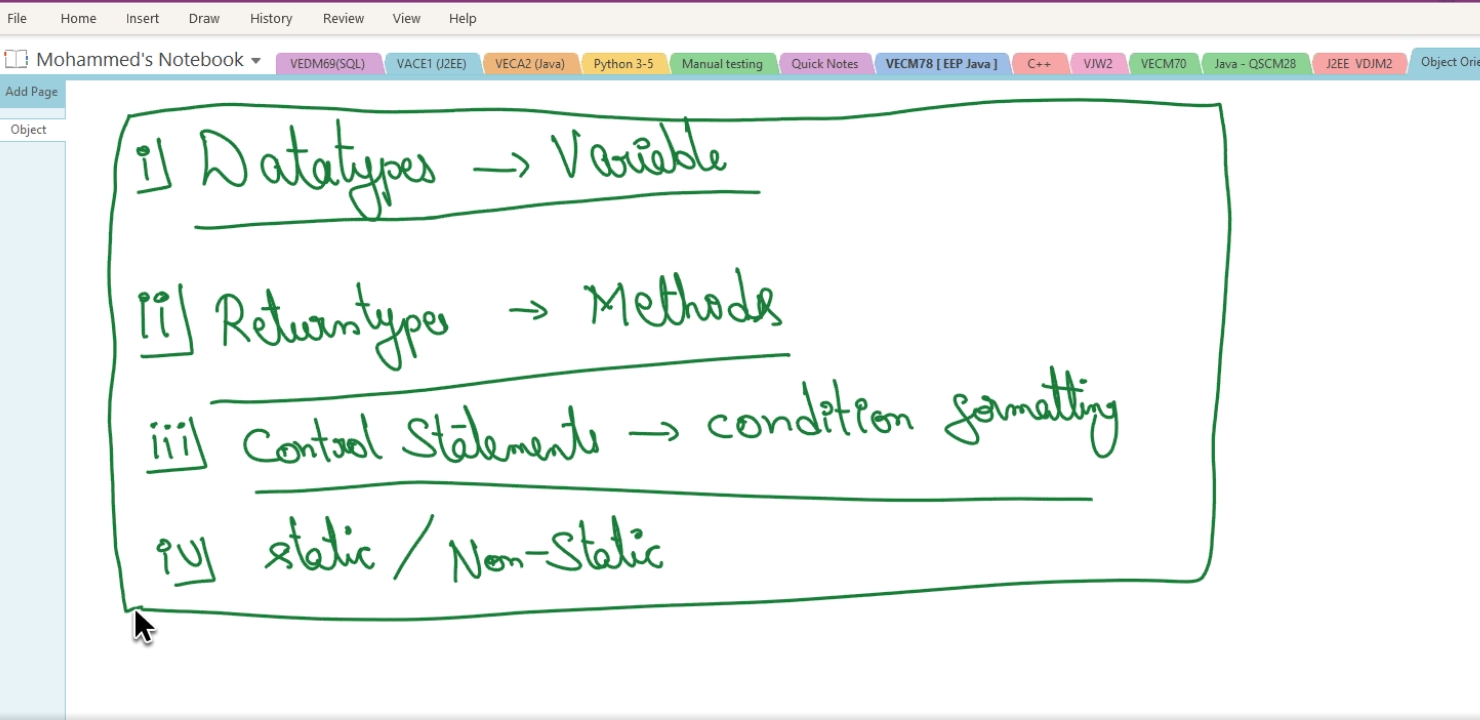 File Home Insert Draw History Review View Help
Mohammed's Notebook VEDM69(SQL) VACE1 (J2EE) VECA2 (Java) Python 3-5 Manual testing Quick Notes VECM78 [ EEP Java ] C++ VJW2 VECM70 Java - QSCM28 J2EE VDJM2 Object Orie
Add Page
Object
i) Datatypes → Variable
ii) Returntypes → Methods
iii) Control Statements → condition formatting
iv) static / Non-Static